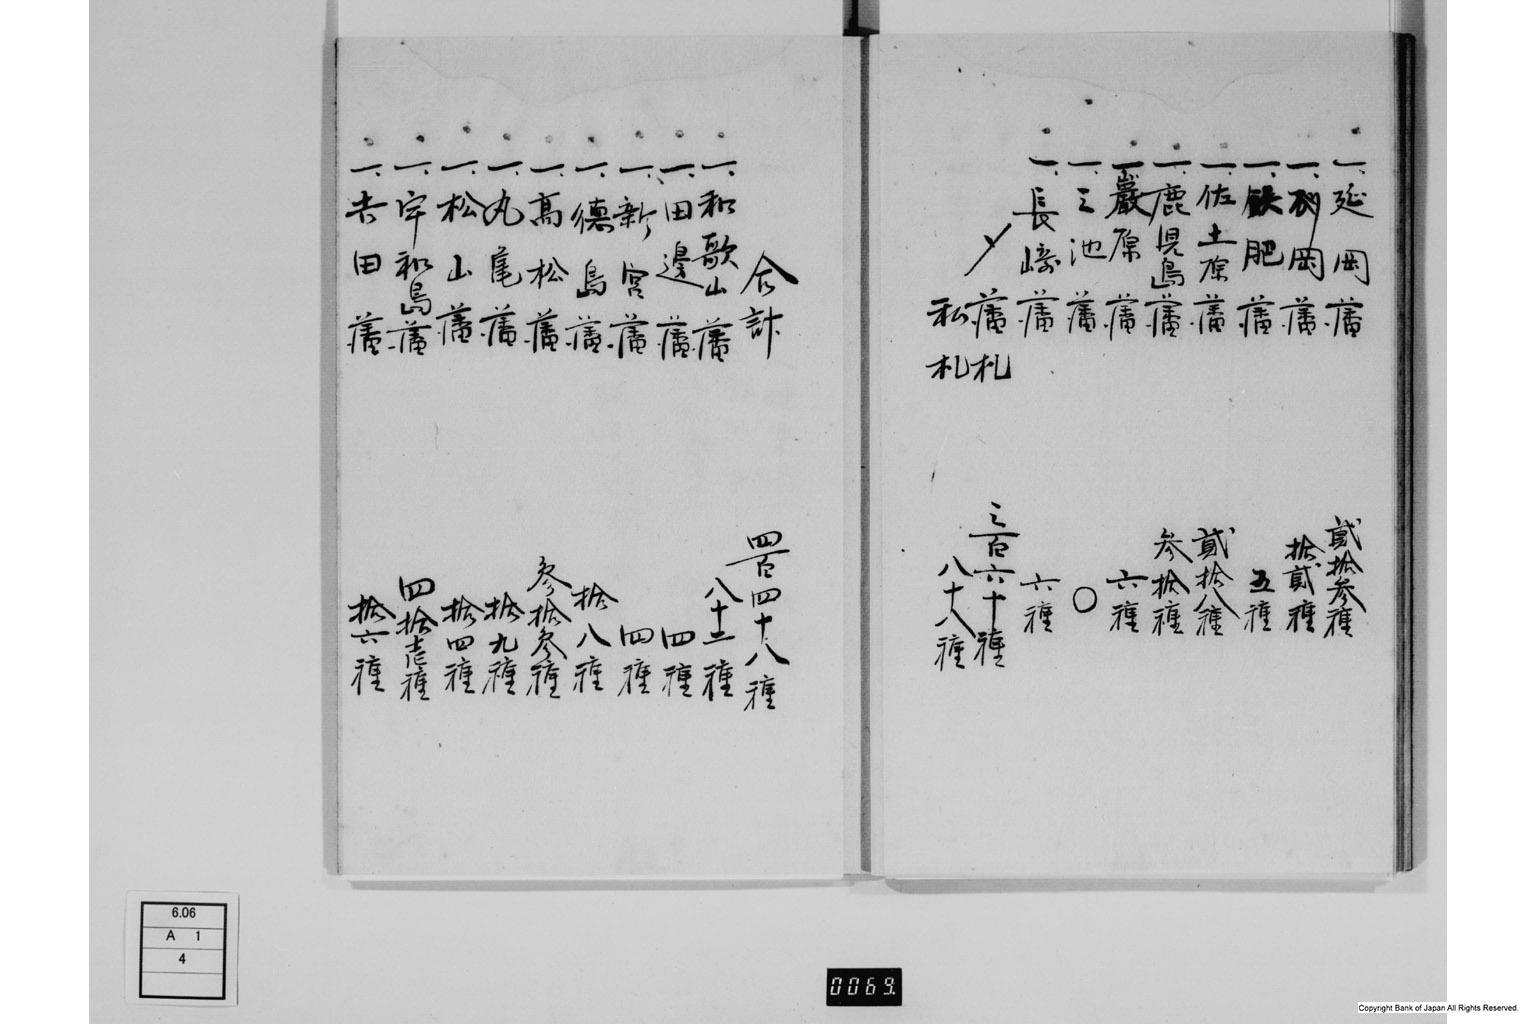 一、延岡藩　貳拾参種
一、秋岡藩　拾貳種
一、飫肥藩　五種
一、佐土原藩　貳拾八種
一、鹿児島藩　参拾種
一、嚴原藩　六種
一、三池藩　〇
一、長崎藩　六種
〆藩札　三百六十種
私札　八十八種
合計　四百四十八種
一、和歌山藩　八十二種
一、田邊藩　四種
一、新宮藩　四種
一、德島藩　拾八種
一、髙松藩　参拾参種
一、丸亀藩　拾九種
一、松山藩　拾四種
一、宇和島藩　四拾壱種
一、吉田藩　拾六種
6.06
A 1
4
0069.
Copyright Bank of Japan All Rights Reserved.